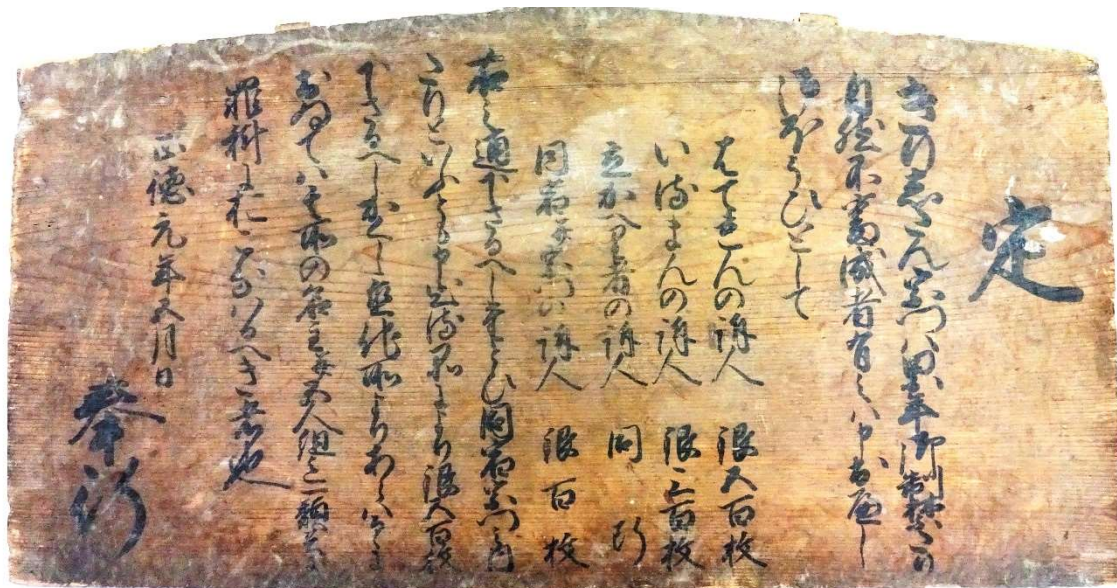 定
きりしたん宗門ハ累年御制禁たり
自然不審成者有之ハ申出へし
御ほうひとして
はてれんの訴人 銀五百枚
いるまんの訴人 銀三百枚
立かへり者の訴人 同断
同宿并宗門の訴人 銀百枚
右之通下さるへしたとひ同宿宗門之内
たりといふとも申出る品により銀五百枚
下さるへしかくし置他所よりあらはるゝに
おゐてハ其所の名主并五人組迄一類共に
罪科におこなハるへき者也
正徳元年五月日
奉行